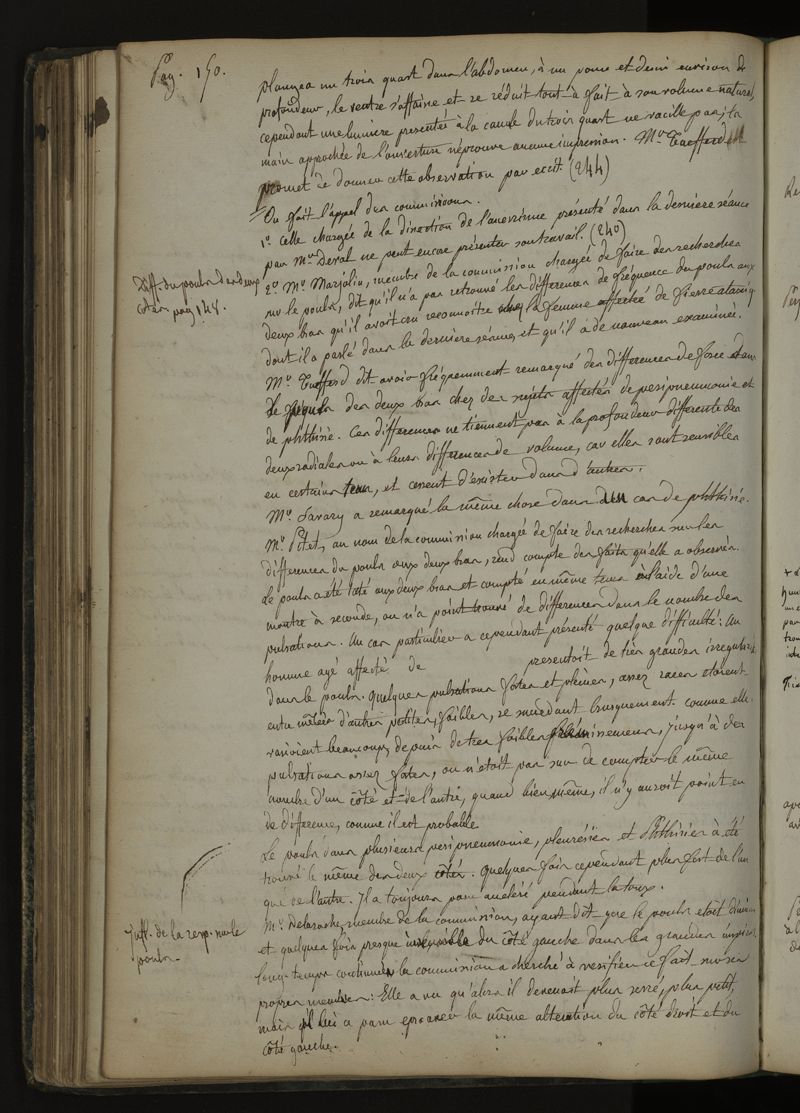 Pag. 150.
plongea un trois quart dans l'abdomen, à un pouce et demi environ de
profondeur, le ventre s'affaisse et se réduit tout à fait à son volume naturel,
cependant une lumière presentée à la canule du trois quart ne vacille pas; la
main approchée de l'ouverture n'éprouve aucune impression. Mr. Tueffferd
promet de donner cette observation par ecrit. (244)
On fait l'appel des commissions.
1o. celle chargée de la direction de l'anevrisme présenté dans la derniere séance
par Mr. Deval ne peut encore présenter son travail. (240)
2o. Mr. Marjolin, membre de la commission chargée de faire des recherches
Diff. du pouls des deux
cotés pag 148.
sur le pouls, dit qu'il n'a pas retrouvé les différences de fréquence du pouls aux
deux bras qu'il avait cru reconnoitre chez la femme affectée de fievre ataxiq.
dont il a parlé dans la derniere séance, et qu'il a de nouveau examiné.
Mr. Tuefferd dit avoir fréquemment remarqué des différences de force dans
le pouls des deux bras chez des sujets affectés de peripneumonie et
de phthisie. Ces differences ne tiennent pas à la profondeur differente des
deux radiales ou à leurs differences de volume, car elles sont sensibles
en certains tems, et cessent d'exister dans d'autres.
Mr. Savary a remarqué la même chose dans des cas de phthisie.
Mr. Petet, au nom de la commission chargée de faire des recherches sur les
différences du pouls aux deux bras, rend compte des faits qu'elle a observés.
Le pouls a été taté aux deux bras et compté en même tems à l'aide d'une
montre à seconde, on n'a point trouvé de différences dans le nombre des
pulsations. Un cas particulier a cependant présenté quelque difficulté: Un
homme agé affecté de presentoit de très grandes irregularités
dans le pouls. quelques pulsations fortes et pleines, assez rares etoient
entremêlées d'autres petites, faibles, se succédant brusquement. comme elles
varioient beaucoup, depuis de très faibles frémissemens, jusqu'à des
pulsations assez fortes, on n'etoit pas sur de compter le même
nombre d'un côté et de l'autre, quand bien même, il n'y auroit point eu
de différence, comme il est probable.
Le pouls dans plusieurs peripneumonies, pleurésies et Phthisies à été
trouvé le même des deux côtés. Quelques fois cependant plus fort de l'un
que de l'autre. Il a toujours paru acceléré pendant la toux.
Mr. Delaroche, membre de la commission, ayant dit que le pouls etoit
Infl. de la resp. sur le
pouls.
et quelques fois presque insensible du côté gauche dans les grandes inspirations
long-tems continuées la commission a cherché à verifier ce fait sur ses
propres membres: Elle a vu qu'alors il devenait plus serré, plus petit,
mais il lui a paru eprouver la même alteration du côté droit et du
côté gauche.